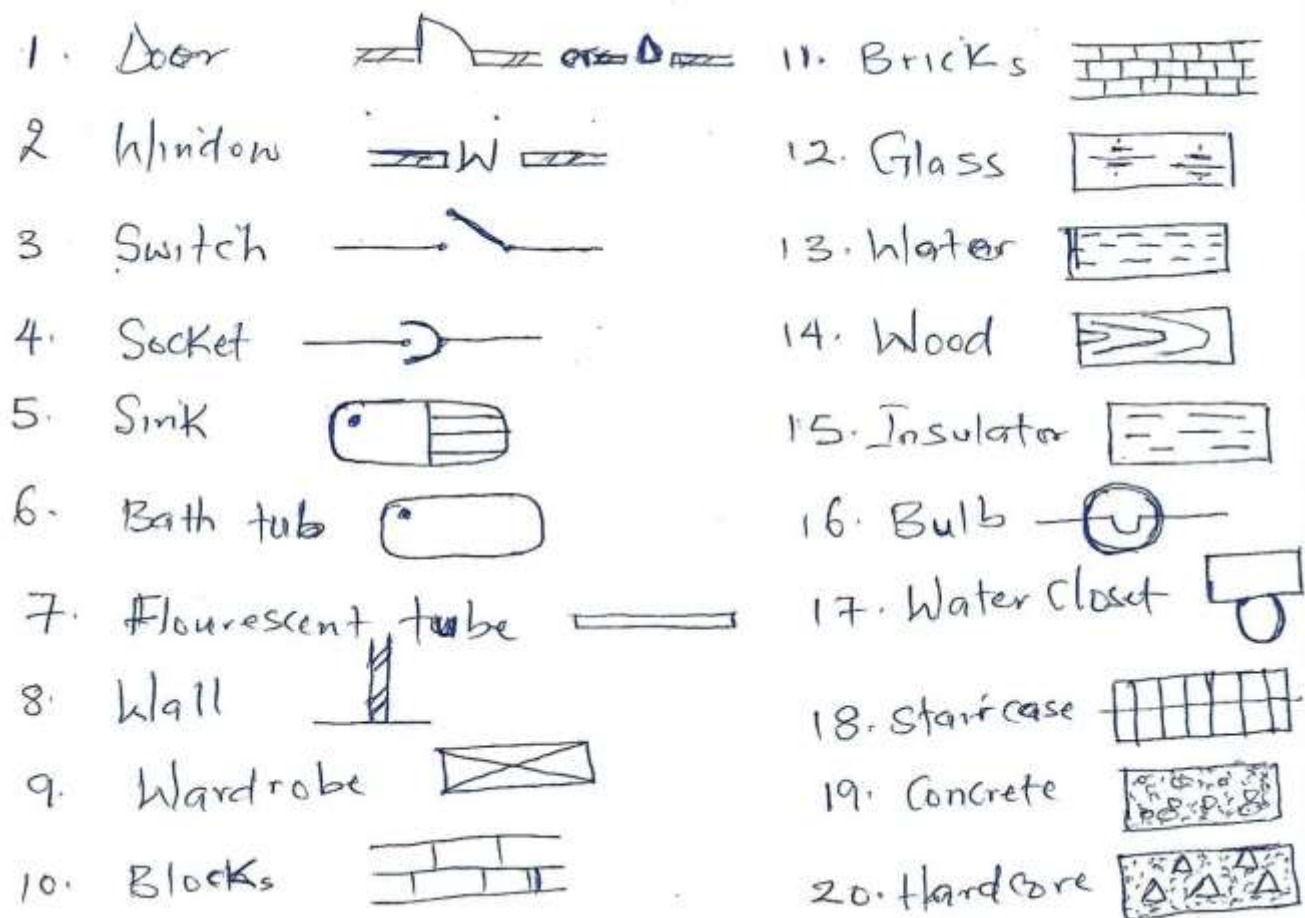 1. Door or D
2 Window W
3 Switch
4. Socket
5. Sink
6. Bath tub
7. Flourescent tube
8. Wall
9. Wardrobe
10. Blocks
11. Bricks
12. Glass
13. Water
14. Wood
15. Insulator
16. Bulb
17. Water Closet
18. Staircase
19. Concrete
20. Hardcore